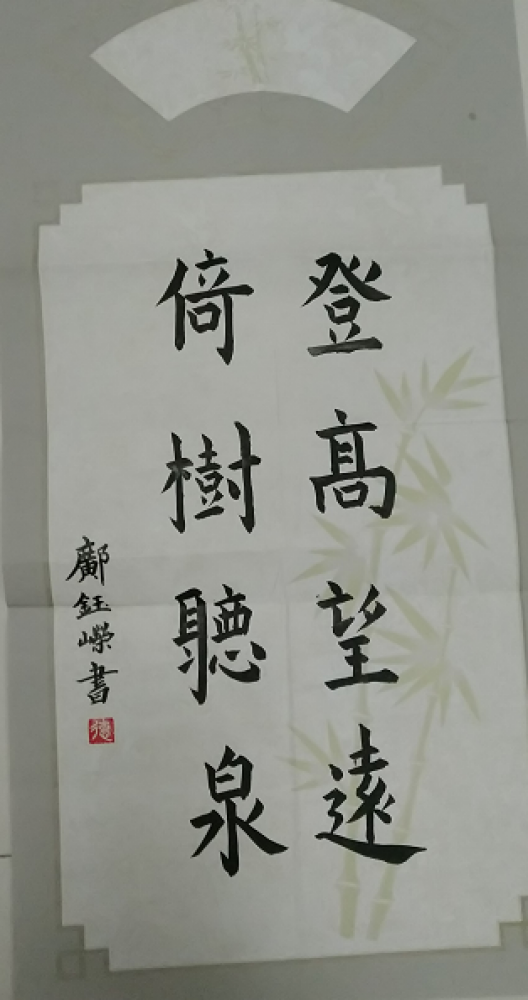 登髙望遠
倚樹聽泉
鄺鈺嶸書